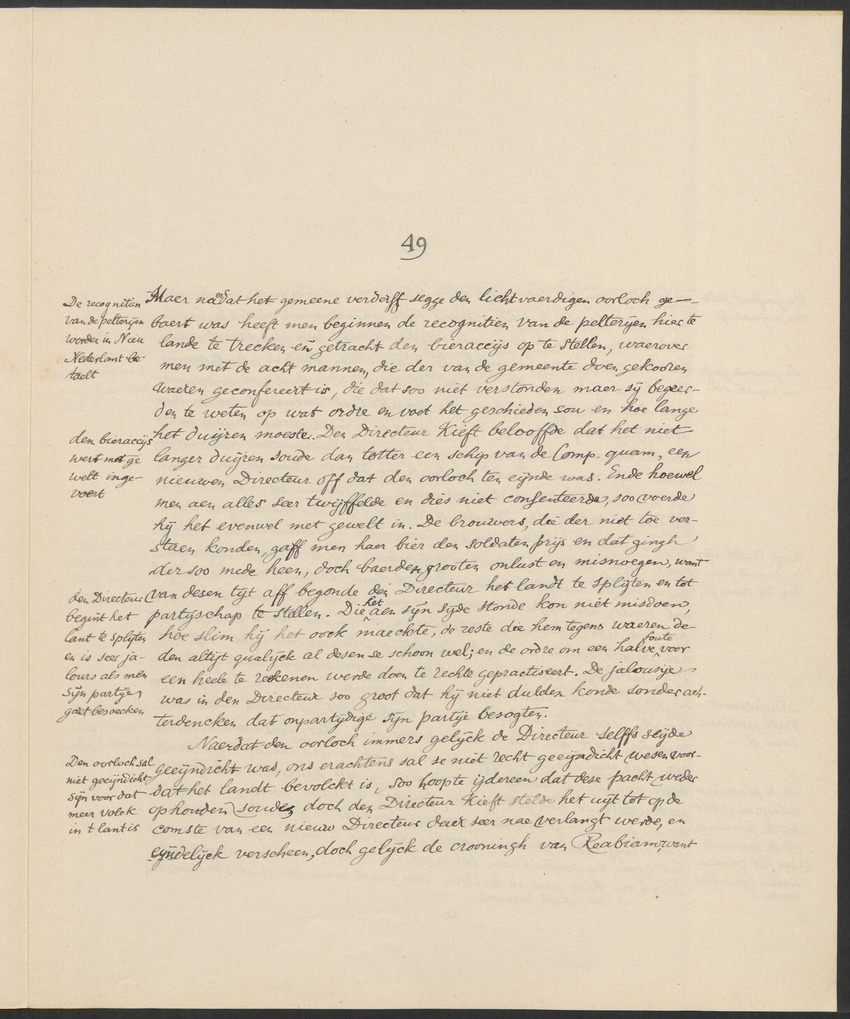 49
De recognitien
van de pelterijen
worden in Nieu
Nederlant be-
taelt
Maer nadat het gemeene verderff segge den lichtvaerdigen oorloch ge-
baert was heeft men beginnen de recognitien van de pelterijen hier te
lande te trecken en getracht den bieraccijs op te stellen, waerover
men met de acht mannen, die der van de gemeente doen gekooren
waeren geconfereert is, die dat soo niet verstonden maer sij begeer-
den te weten op wat ordre en voet het geschieden sou en hoe lange
den bieraccijs
wert met ge
welt inge-
voert
het duijren moeste. Den Directeur Kieft belooffde dat het niet
langer duijren soude dan totter een schip van de Comp. quam, een
nieuwen Directeur off dat den oorloch ten eijnde was. Ende hoewel
men aen alles seer twijffelde en dies niet consenteerde, soo voerde
hij het evenwel met gewelt in. De brouwers, die der niet toe ver-
staen konden, gaff men haer bier den soldaten prijs en dat gingh
der soo mede heen, doch baerden grooten onlust en misnoegen, want
den Directeur
begint het
lant te splijten
en is seer ja-
lours als men
sijn partijen
gaet besoecken
van desen tijt aff begonde den Directeur het landt te splijten en tot
partyschap te stellen. Die het aen sijn sijde stonde kon niet misdoen,
hoe slim hij het oock maeckte, de reste die hem tegens waeren de-
den altijt qualijck al desen se schoon wel; en de ordre om een halve foute voor
een heele te reekenen werde doen te rechte gepractiseert. De jalousije
was in den Directeur soo groot dat hij niet dulden konde sonder ach-
terdencken dat onpartijdige sijn partije besogten.
Den oorloch sal
niet geeijndicht
sijn voor dat
meer volck
in t lant is
Naerdat den oorloch immers gelijck de Directeur selffs seijde
geeijndicht was, ons erachtens sal se niet recht geeijndicht wesen voor-
dat het landt bevolckt is, soo hoopte ijdereen dat dese pacht weder
ophouden soude, doch den Directeur Kieft stelde het uijt tot op de
comste van een nieuw Directeur daer seer nae verlangt werde, en
eijndelijck verscheen, doch gelijck de crooningh van Reabiam, want